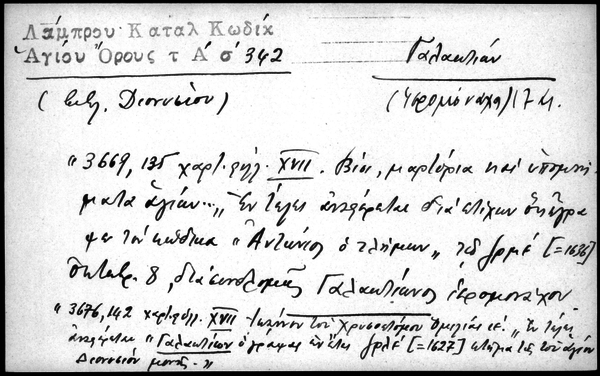 Λάμπρου Καταλ Κωδίκ
Ἁγίου Ὄρους τ Α' σ' 342
Γαλακτίων
(βιβλ. Διονυσίου)
(Ἱερομόναχος) 17 αἰ.
"3669, 135 χαρτ. φύλλ. XVII. Βίοι, μαρτύρια καὶ ὑπομνή
ματα ἁγίων..., Ἐν τέλει ἀναφέρεται διὰ στίχων ὅτι ἔγρα
ψεν τὸν κώδικα "Ἀντώνιος ὁ τλήμων" τῷ ζρμέ [=1636]
Ὀκτωβρ. 8, διὰ συνδρομῆς Γαλακτίωνος ἱερομονάχου
"3676, 142 χαρτ. φύλλ. XVII Ἰωάννου τοῦ Χρυσοστόμου Ὁμιλίαι Ἐν τέλει
ἀναφέρεται "Γαλακτίων ὁ γράψας ἐν ἔτει ζρλέ [=1627] κτῆμα τῆς τοῦ ἁγίου
Διονυσίου μονῆς."